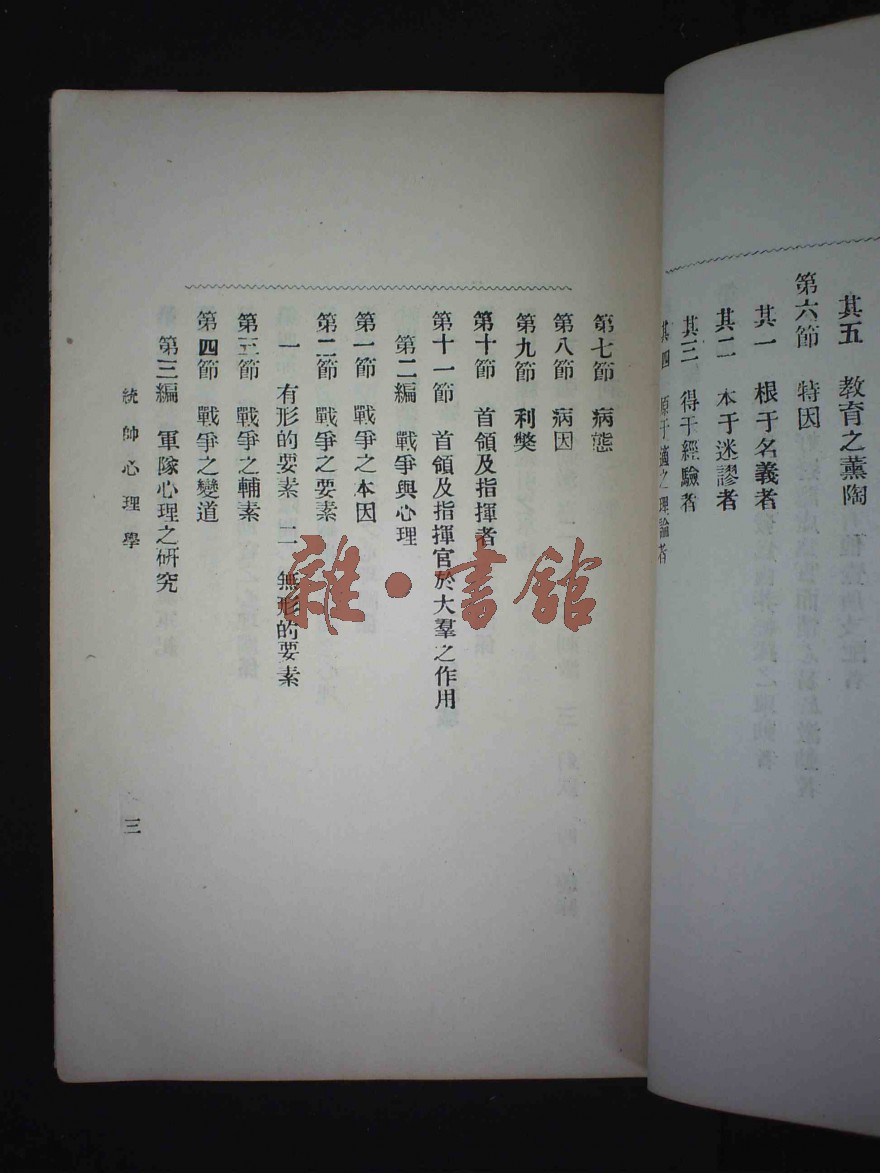 其五　教育之薰陶
第六節　特因
其一　根于名義者
其二　本于迷謬者
其三　得于經驗者
其四　原于適之理論者
第七節　病態
第八節　病因
第九節　利獘
第十節　首領及指揮者
第十一節　首領及指揮官於大羣之作用
第二編　戰爭與心理
第一節　戰爭之本因
第二節　戰爭之要素
一　有形的要素　二　無形的要素
第三節　戰爭之輔素
第四節　戰爭之變道
第三編　軍隊心理之研究
統帥心理學
三
雜·書館